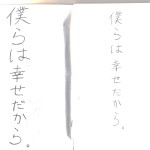 僕らは幸せだから。
僕らは幸せだから。